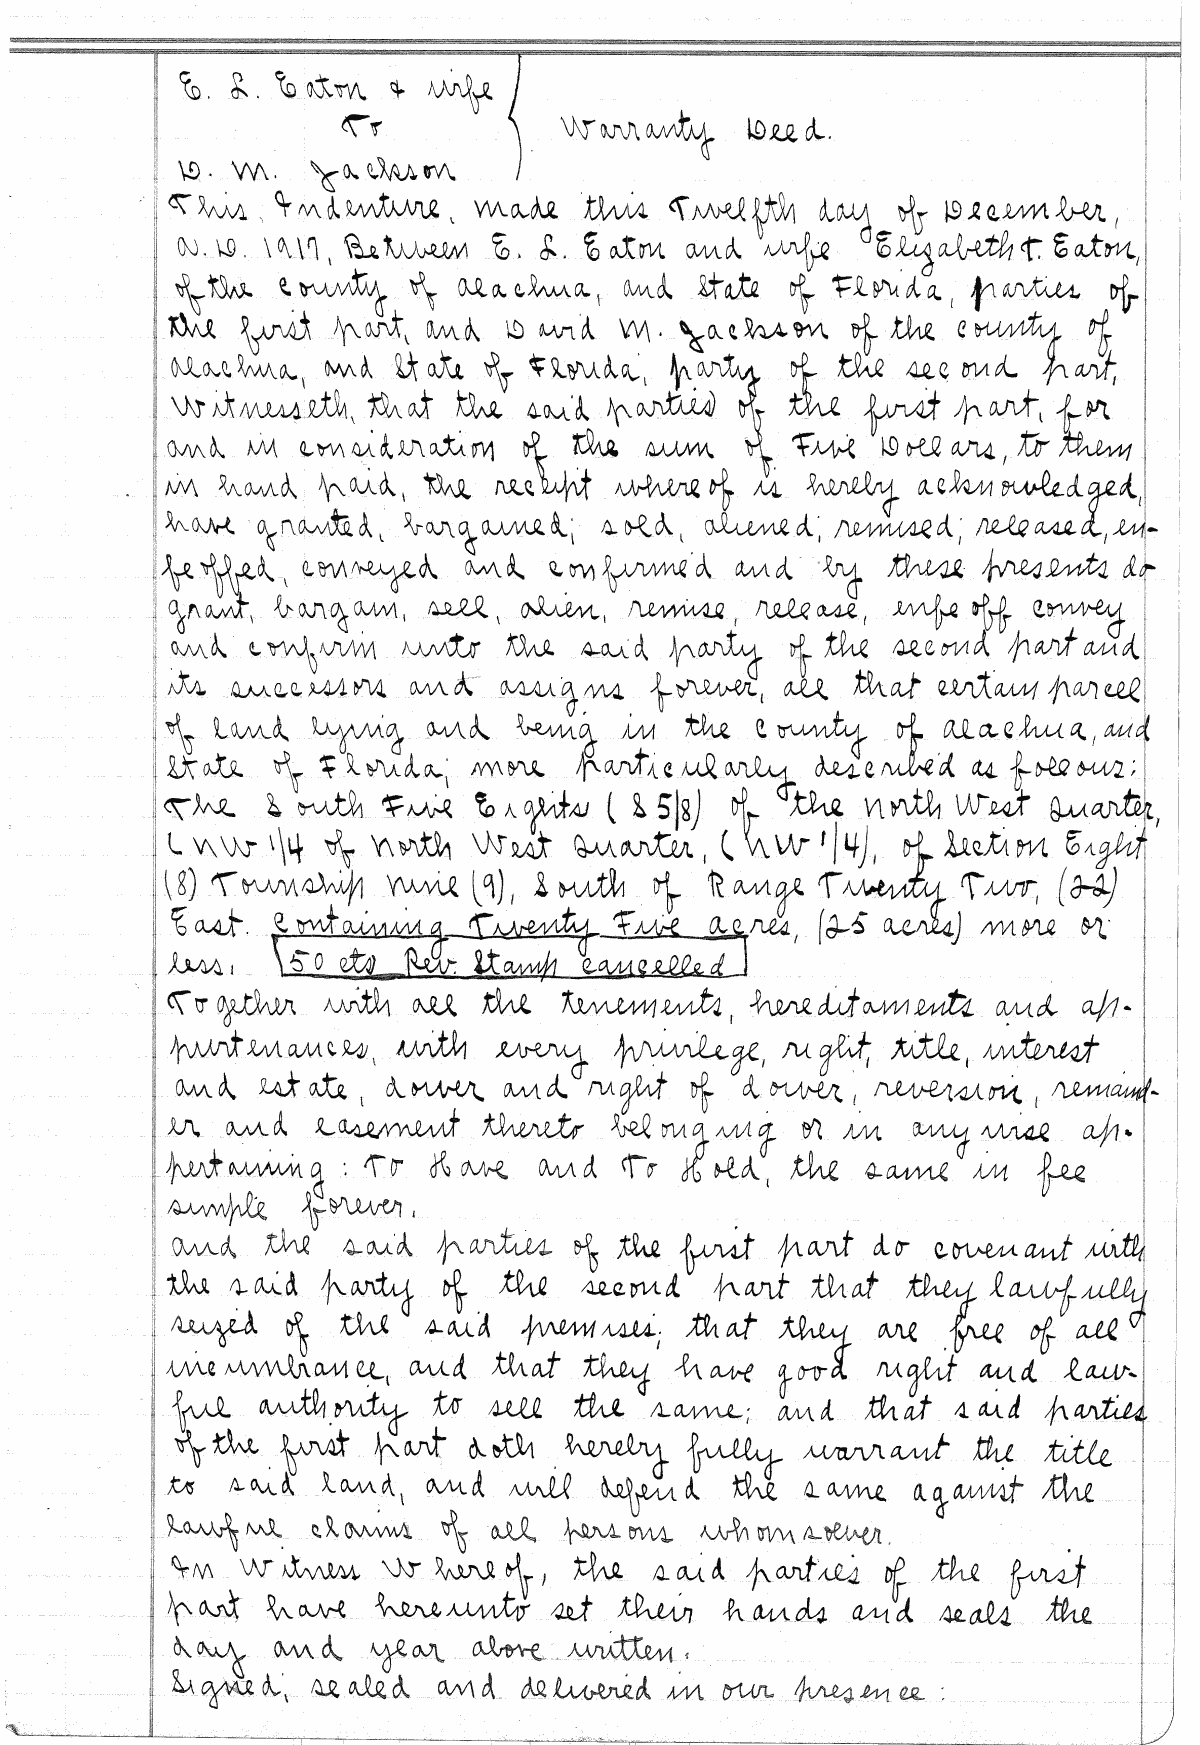 E. L. Eaton & wife
To
Warranty Deed.
D. M. Jackson
This, Indenture, made this Twelfth day of December,
A. D. 1917, Between E. L. Eaton and wife Elizabeth T. Eaton,
of the County of Alachua, and State of Florida, parties of
the first part, and David M. Jackson of the County of
Alachua, and State of Florida, party of the second part,
Witnesseth, that the said parties of the first part, for
and in consideration of the sum of Five Dollars, to them
in hand paid, the receipt whereof is hereby acknowledged,
have granted, bargained; sold, aliened; remised; released, en-
feoffed, conveyed and confirmed and by these presents do
grant, bargain, sell, alien, remise, release, enfeoff convey
and confirm unto the said party of the second part and
its successors and assigns forever, all that certain parcel
of land lying and being in the County of Alachua, and
State of Florida; more particularly described as follows:
The South Five Eights (S 5/8) of the North West Quarter,
(NW 1/4 of North West Quarter, (NW 1/4), of Section Eight
(8) Township Nine (9), South of Range Twenty Two, (22)
East. Containing Twenty Five acres, (25 acres) more or
less. 50 cts Rev. Stamp cancelled
Together with all the tenements, hereditaments and ap-
purtenances, with every privilege, right, title, interest
and estate, dower and right of dower, reversion, remaind-
er and easement thereto belonging or in anywise ap-
pertaining: To Have and To Hold, the same in fee
simple forever.
And the said parties of the first part do covenant with
the said party of the second part that they lawfully
seized of the said premises; that they are free of all
incumbrance, and that they have good right and law-
ful authority to sell the same; and that said parties
of the first part doth hereby fully warrant the title
to said land, and will defend the same against the
lawful claims of all persons whomsoever.
In Witness Whereof, the said parties of the first
part have hereunto set their hands and seals the
day and year above written.
Signed, sealed and delivered in our presence: